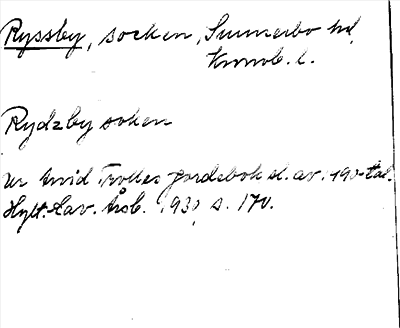 Ryssby, socken, Sunnerbo hd,
Kronob. l.
Rydzby soken
ur Arvid Trolles jordebok sl. av. 190-tal.
Hylt. Cav. Årsb. 1930 s. 170.